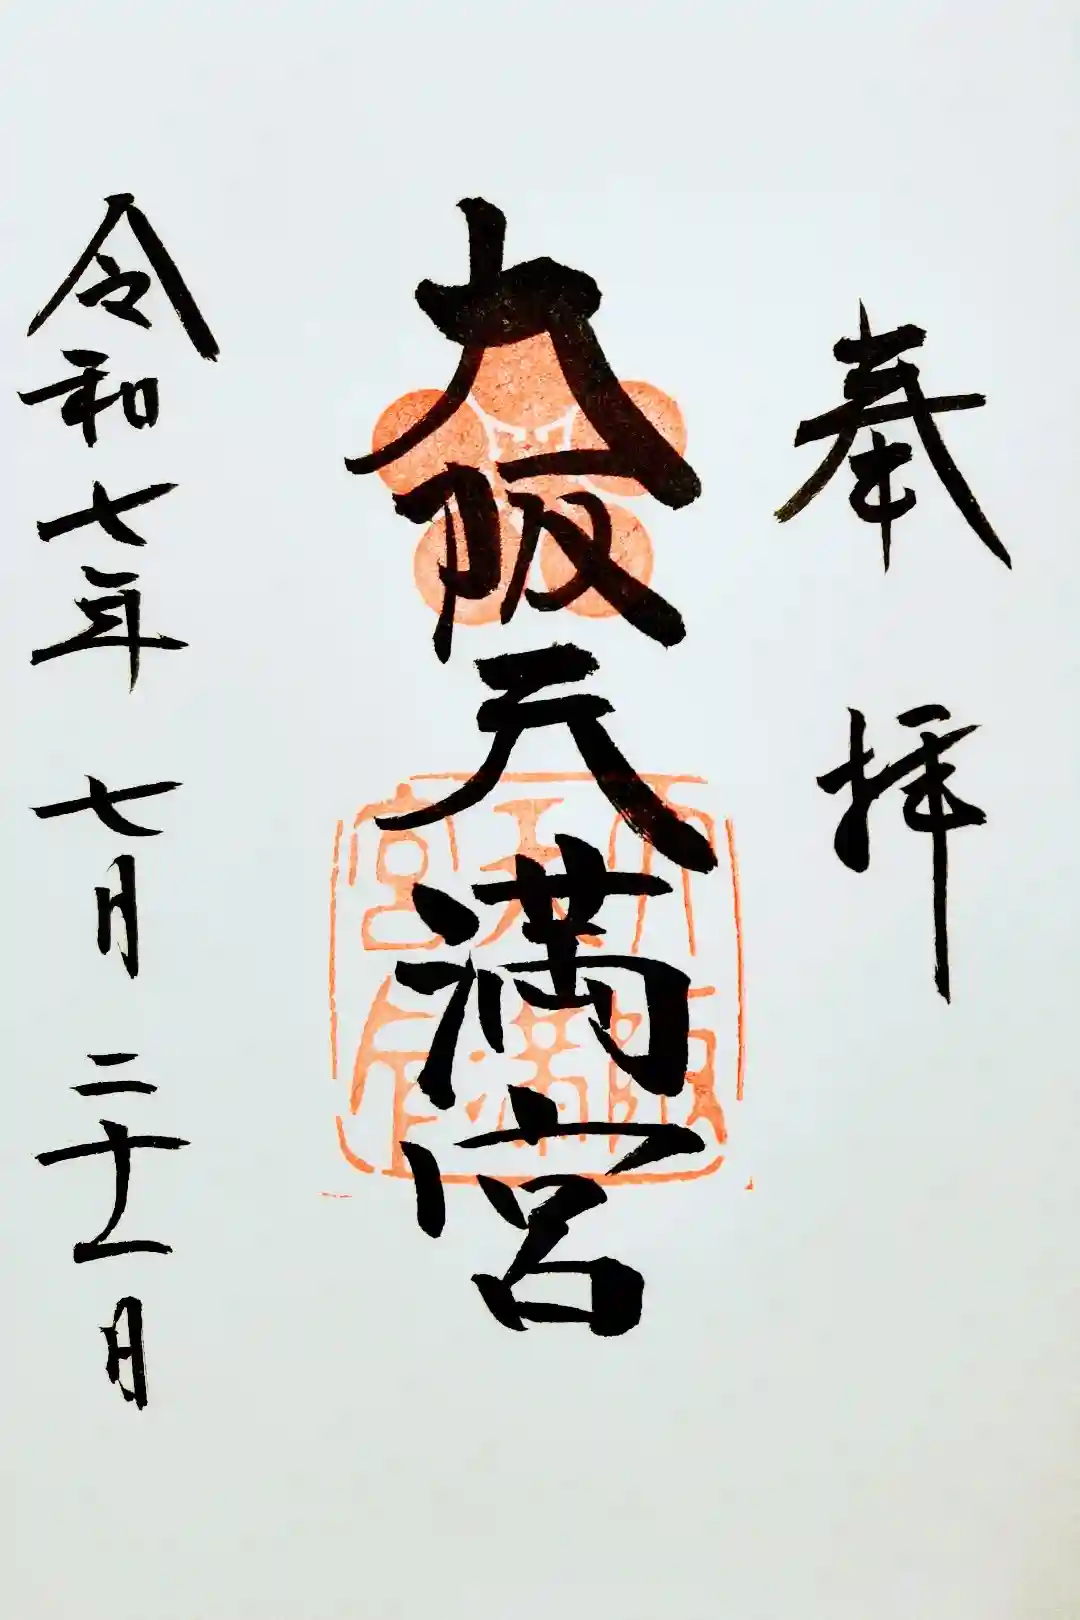 奉拝
大阪天満宮
大阪天満宮印
令和七年七月二十一日